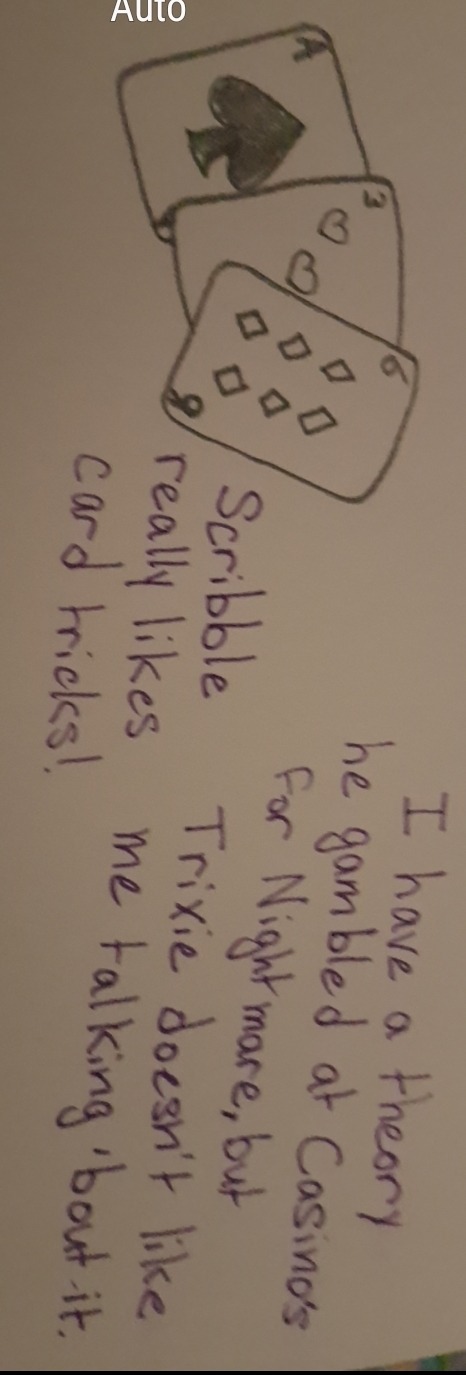 Auto
A
3
6
9
Scribble
really likes
card tricks!
I have a theory
he gambled at Casino's
for Nightmare, but
Trixie doesn't like
me talking 'bout it.